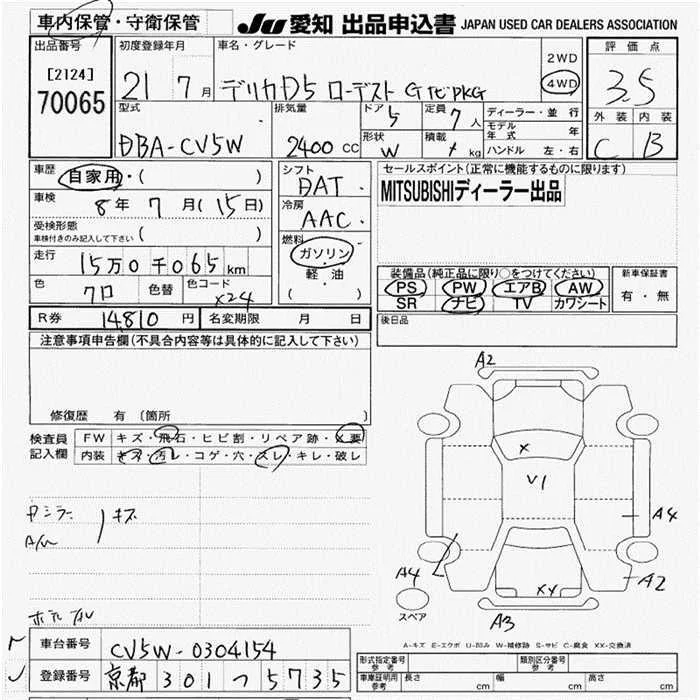 車内保管・守衛保管 JU 愛知 出品申込書 JAPAN USED CAR DEALERS ASSOCIATION
出品番号 初度登録年月 車名・グレード 評価点
[2124] 2WD
70065 21 7月 デリカD5 ローデスト G ナビPKG 4WD 3.5
型式 排気量 ドア 5 定員 7人 ディーラー・並行 外装 内装
モデル年式 年
DBA-CV5W 2400cc 形状 W 積載 kg ハンドル 左・右 C B
車歴 自家用・( ) シフト DAT セールスポイント(正常に機能するものに限ります)
車検 8年7月(15日) 冷房 AAC MITSUBISHIディーラー出品
受検形態 車検付きのみ記入して下さい ( ) 燃料
走行 15万0千065km ガソリン・軽油 ( ) 装備品(純正品に限り○をつけてください) 新車保証書
色 クロ 色替 色コード X24 PS PW エアB AW 有・無
SR ナビ TV カワシート
R券 14,810円 名変期限 月 日 後日品
注意事項申告欄(不具合内容等は具体的に記入して下さい)
A2
修復歴 有 〔箇所 〕
検査員記入欄 FW キズ・飛石・ヒビ割・リペア跡・X要
内装 キズ・汚レ・コゲ・穴・スレ・キレ・破レ
X
V1
キズ
A/W
A4
A4
A2
XX
スペア
A3
A-キズ E-エクボ U-凹み W-補修跡 S-サビ C-腐食 XX-交換済
車台番号 CV5W-0304154
登録番号 京都 301 つ 5735
形式指定番号 参考 類別区分番号 参考
車庫証明用 参考 長さ cm 幅 cm 高さ cm